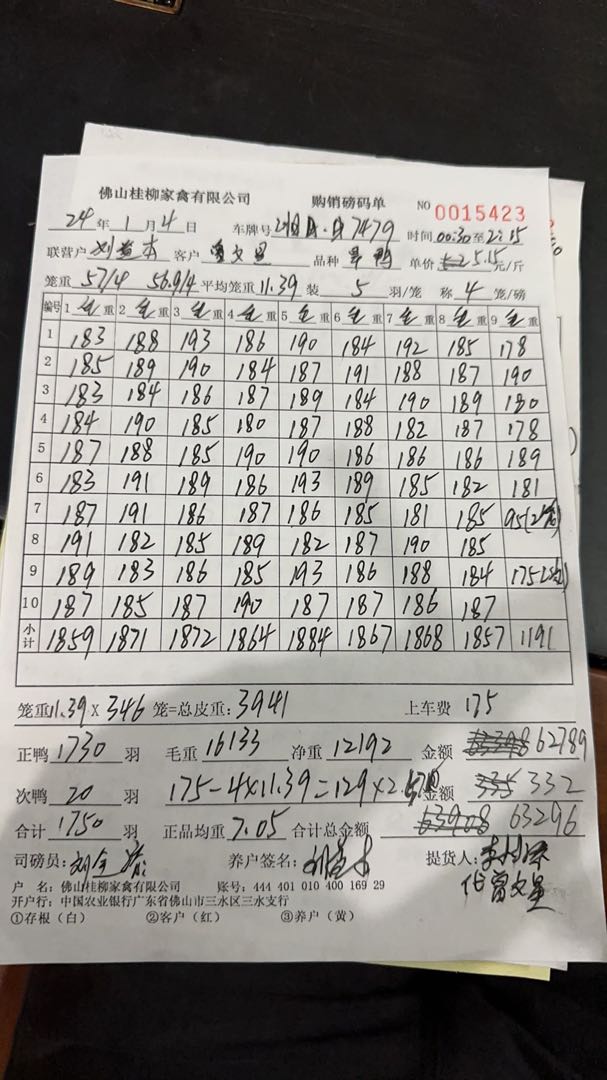 佛山桂柳家禽有限公司 购销磅码单 NO 0015423
24年1月4日 车牌号 7479 时间 00:30至2:15
联营户 刘益本 客户 曾文星 品种 单价 5.15元/斤
笼重 57/4 56.9/4 平均笼重 11.39 装 5 羽/笼 称 4 笼/磅
编号 1 毛重 2 毛重 3 毛重 4 毛重 5 毛重 6 毛重 7 毛重 8 毛重 9 毛重
1 183 188 193 186 190 184 192 185 178
2 185 189 190 184 187 191 188 187 190
3 183 184 186 187 189 184 190 189 180
4 184 190 185 180 187 188 182 187 178
5 187 188 185 190 190 186 186 186 189
6 183 191 189 186 193 189 185 182 181
7 187 191 186 187 186 185 181 185 95(2笼)
8 191 182 185 189 182 187 190 185
9 189 183 186 185 193 186 188 184 175
10 187 185 187 190 187 187 186 187
小计 1859 1871 1872 1864 1884 1867 1868 1857 1191
笼重 11.39 × 346 笼=总皮重: 3941 上车费 175
正鸭 1730 羽 毛重 16133 净重 12192 金额 62789
次鸭 20 羽 175-4×11.39=129×2.57 金额 332
合计 1750 羽 正品均重 7.05 合计总金额 63296
司磅员: 养户签名: 刘益本 提货人:
代曾文星
户 名: 佛山桂柳家禽有限公司 账号: 444 401 010 400 169 29
开户行: 中国农业银行广东省佛山市三水区三水支行
①存根（白） ②客户（红） ③养户（黄）